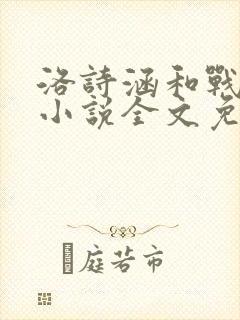 洛詩涵和戰
小說全文免
庭若市